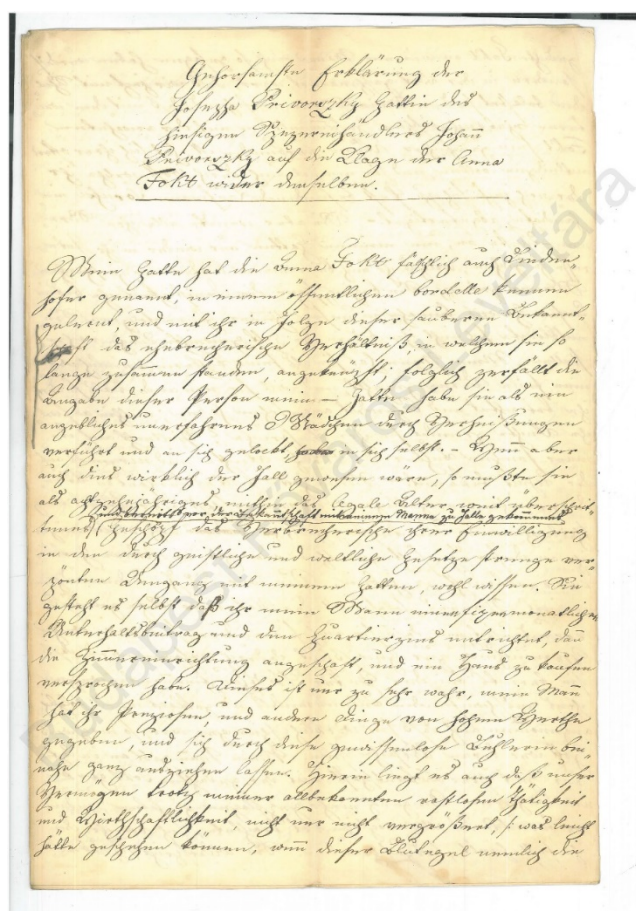 Gehorsamste Erklärung der
Josepha Privorszky Gattin des
hiesigen Spezereihändlers Johann
Privorszky auf die Klage der Anna
Fokt wider denselben.
Mein Gatte hat die Anna Fokt fälschlich auch Linden-
hofer genannt, in einem öffentlichen bordelle kennen
gelernt, und mit ihr in Folge dieser sauberen Bekannt-
schaft das ehebrecherische Verhältniß, in welchem sie so
lange zusammen standen, angeknüpft; folglich zerfällt die
Angabe dieser Person mein Gatte habe sie als ein
angebliches unerfahrnes Mädchen durch Verheißungen
verführt und an sich gelockt, in sich selbst. – Wenn aber
auch dies wirklich der Fall gewesen wäre, so mußte sie
als achtzehnjähriges, mithin das legale Alter weit überschrit-
und bereits vor der Bekanntschaft mit meinem Manne zu Falle gekommenes
tenes Geschöpf das Verbrecherische ihrer Einwilligung
in den durch geistliche und weltliche Gesetze strenge ver-
pönten Umgang mit meinem Gatten, wohl wissen. Sie
gesteht es selbst daß ihr mein Mann einen fixen monatlichen
Unterhaltsbeitrag und den Quartierzins entrichtet, dann
die Zimmereinrichtung angeschaft, und ein Haus zu kaufen
versprochen habe. Dieses ist nur zu sehr wahr, mein Mann
hat ihr Preziosen, und andere Dinge von hohem Werthe
gegeben, und sich durch diese gewissenlose Buhlerin bei-
nahe ganz ausziehen lassen. Hierin liegt es auch daß unser
Vermögen trotz meiner allbekannten rastlosen Thätigkeit
und Wirthschaftlichkeit, nicht nur nicht vergrößert, /: was leicht
hätte geschehen können, wenn dieser Blutegel nemlich die